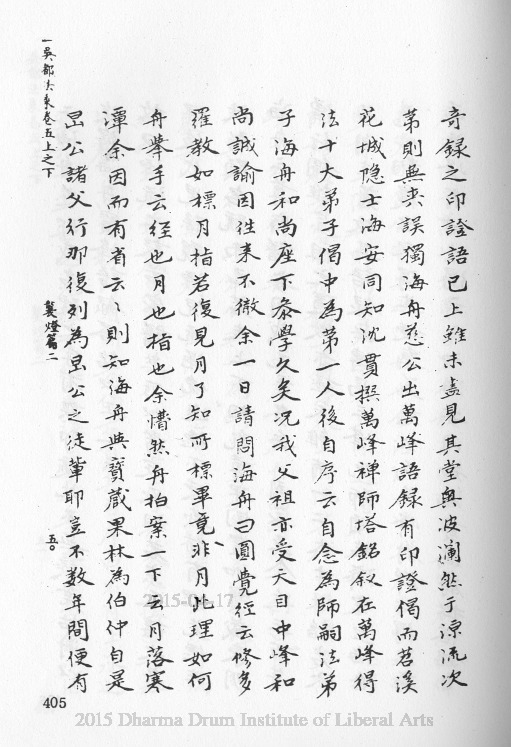 奇録之印證語已上雖未盡見其堂奥波瀾然于源流次
第則無舛誤獨海舟慈公出萬峰語録有印證偈而苕溪
花城隐士海安同知沈貫撰萬峰禅師塔銘叙在萬峰得
法十大弟子偈中為第一人後自序云自念為師嗣法弟
子海舟和尚座下叅學久矣况我父祖亦受天目中峰和
尚誠諭因往来不徹余一日請問海舟曰圓覺經云修多
羅教如標月指若復見月了知所標畢竟非月此理如何
舟舉手云経也月也指也余懵然舟拍案一下云月落寒
潭余因而有省云〻則知海舟與寳蔵果林為伯仲自是
昷公諸父行那復列為昷公之徒輩耶豈不数年間便有
一吳都法乗卷五上之下
襲燈篇二
五〇
405
2015-04-17
2015 Dharma Drum Institute of Liberal Arts